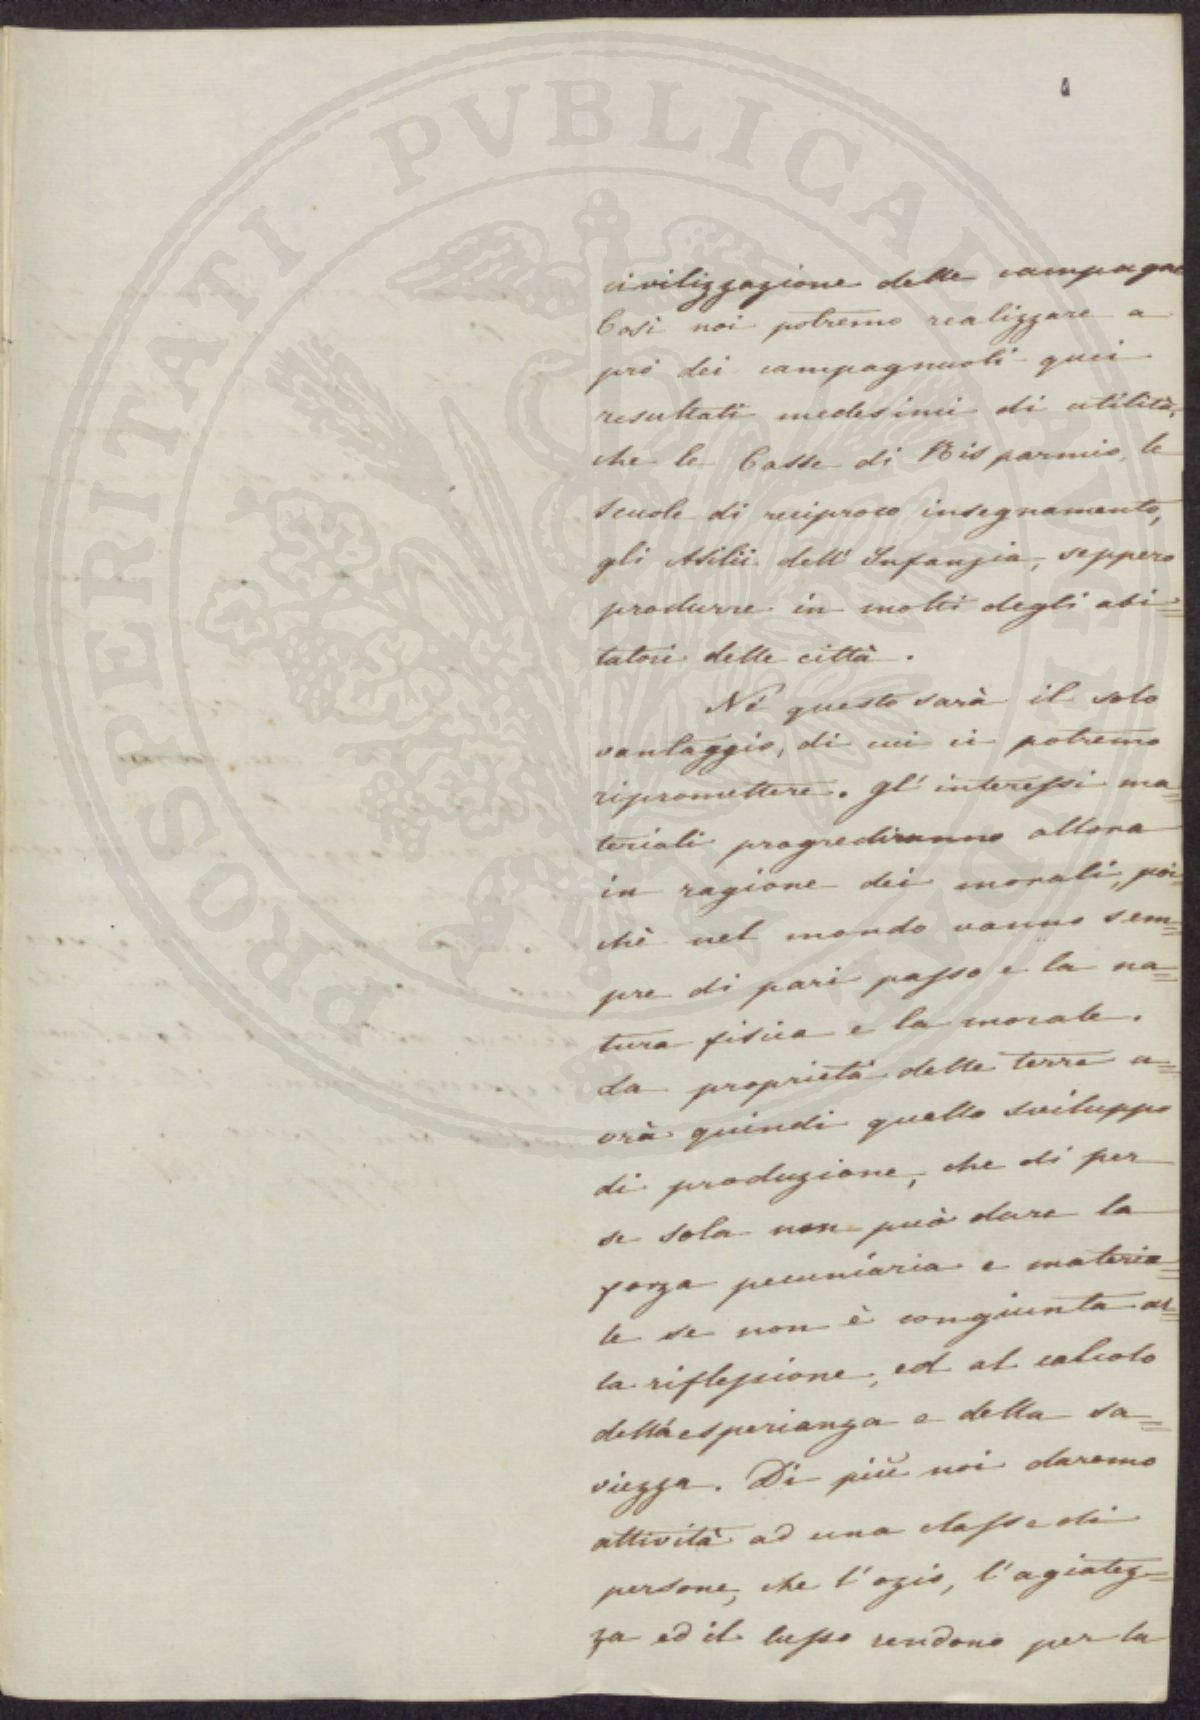 PROSPERITATI PVBLICAE AVGENDAE
civilizzazione delle campagne
Così noi potremo realizzare a
prò dei campagnuoli quei
resultati medesimi di utilità,
che le Casse di Risparmio, le
scuole di reciproco insegnamento,
gli Asilii dell' Infanzia, seppero
produrre in molti degli abi=
tatori delle città.
Nè questo sarà il solo
vantaggio, di cui ci potremo
ripromettere. Gl' interessi ma=
teriali progrediranno allora
in ragione dei morali, poi=
chè nel mondo vanno sem=
pre di pari passo e la na=
tura fisica e la morale.
La proprietà delle terre a=
vrà quindi quello sviluppo
di produzione, che di per
se sola non può dare la
forza pecuniaria e materia=
le se non è congiunta al=
la riflessione, ed al calcolo
dell'esperianza e della sa=
viezza. Di più noi daremo
attività ad una classe di
persone, che l'ozio, l'agiatez=
za ed il lusso rendono per la